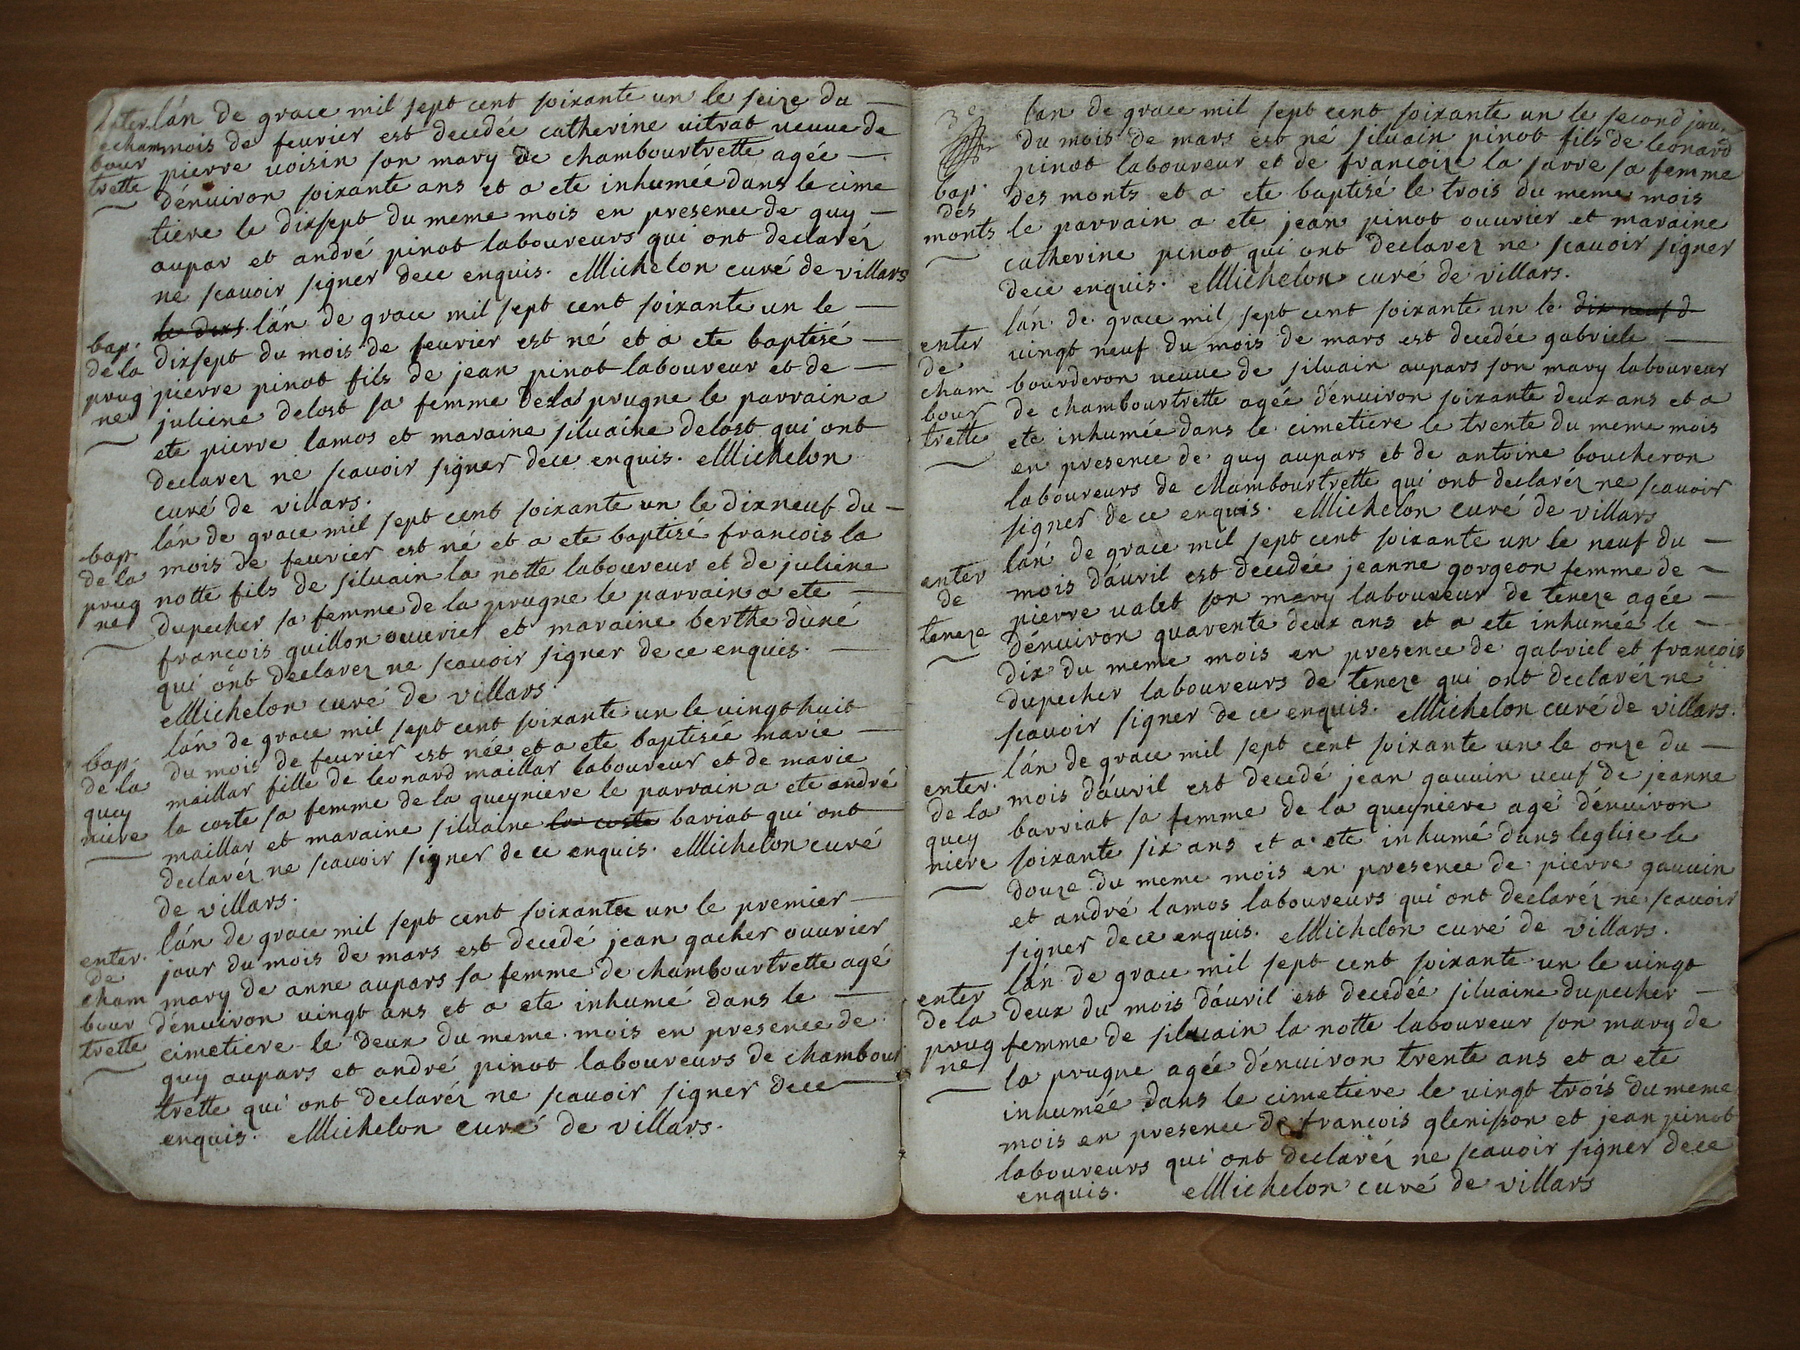 enter lán de grace mil sept cent soixante un le seize du
de cham mois de feurier est decedée catherine uitrat ueuue de
bour pierre uoisin son mary de chambourtrette agée
trette dénuiron soixante ans et a ete inhumée dans le cime
tiere le dixsept du meme mois en presence de guy
aupar et andré pinot laboureurs qui ont declaréz
ne scauoir signer de ce enquis. Michelon curé de villars
le dixs lán de grace mil sept cent soixante un le
bap. dixsept du mois de feurier est né et a ete baptisé
de la pierre pinot fils de jean pinot laboureur et de
prug juliene delost sa femme de la prugne le parrain a
ne ete pierre lamos et maraine siluaine delost qui ont
declarez ne scauoir signer de ce enquis. Michelon
curé de villars.
lán de grace mil sept cent soixante un le dixneuf du
bap. mois de feurier est né et a ete baptisé francois la
de la notte fils de siluain la notte laboureur et de juliene
prug dupecher sa femme de la prugne le parrain a ete
ne francois guillon ouurier et maraine berthe düné
qui ont declarez ne scauoir signer de ce enquis.
Michelon curé de villars.
lán de grace mil sept cent soixante un le uingt huit
bap. du mois de feurier est née et a ete baptisée marie
de la maillar fille de leonard maillar laboureur et de marie
quey la coste sa femme de la queyniere le parrain a ete andré
niere maillar et maraine siluaine la coste bariat qui ont
declaréz ne scauoir signer de ce enquis. Michelon curé
de villars.
lán de grace mil sept cent soixante un le premier
enter. jour du mois de mars est decedé jean gacher ouurier
de mary de anne aupars sa femme de chambourtrette agé
cham dénuiron uingt ans et a ete inhumé dans le
bour cimetiere le deux du meme mois en presence de
trette guy aupars et andré pinot laboureurs de chambour
trette qui ont declaréz ne scauoir signer de ce
enquis. Michelon curé de villars.
3e lan de grace mil sept cent soixante un le second jour
du mois de mars est né siluain pinot fils de leonard
pinot laboureur et de francoize la jarre sa femme
bap. des monts et a ete baptisé le trois du meme mois
des le parrain a ete jean pinot ouurier et maraine
monts catherine pinot qui ont declarez ne scauoir signer
de ce enquis. Michelon curé de villars.
lán de grace mil sept cent soixante un le dix neuf d
enter uingt neuf du mois de mars est decedée gabriele
de bourderon ueuue de siluain aupars son mary laboureur
cham de chambourtrette agée dénuiron soixante deux ans et a
bour ete inhumée dans le cimetiere le trente du meme mois
trette en presence de guy aupars et de antoine boucheron
laboureurs de chambourtrette qui ont declaréz ne scauoir
signer de ce enquis. Michelon curé de villars
lán de grace mil sept cent soixante un le neuf du
enter mois dáuril est decedée jeanne gorgeon femme de
de pierre ualet son mary laboureur de teneze agée
teneze dénuiron quarente deux ans et a ete inhumée le
dix du meme mois en presence de gabriel et francois
dupecher laboureurs de teneze qui ont declaréz ne
scauoir signer de ce enquis. Michelon curé de villars.
lán de grace mil sept cent soixante un le onze du
enter. mois dáuril est decedé jean gauuin ueuf de jeanne
de la barriat sa femme de la queyniere agé dénuiron
quey soixante six ans et a ete inhumé dans leglise le
niere douze du meme mois en presence de pierre gauuin
et andré lamos laboureurs qui ont declaréz ne scauoir
signer de ce enquis. Michelon curé de villars.
lán de grace mil sept cent soixante un le uingt
enter deux du mois dáuril est decedée siluaine dupecher
de la femme de siluain la notte laboureur son mary de
prug la prugne agée dénuiron trente ans et a ete
ne inhumée dans le cimetiere le uingt trois du meme
mois en presence de francois glenisson et jean pinot
laboureurs qui ont declaréz ne scauoir signer de ce
enquis. Michelon curé de villars